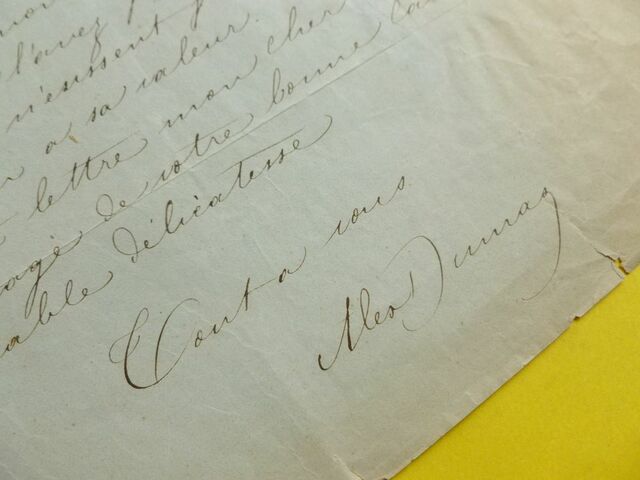 l'avez
n'eussent
a sa valeur.
lettre mon cher
de votre bonne
délicatesse
Tout a vous
Alex Dumas